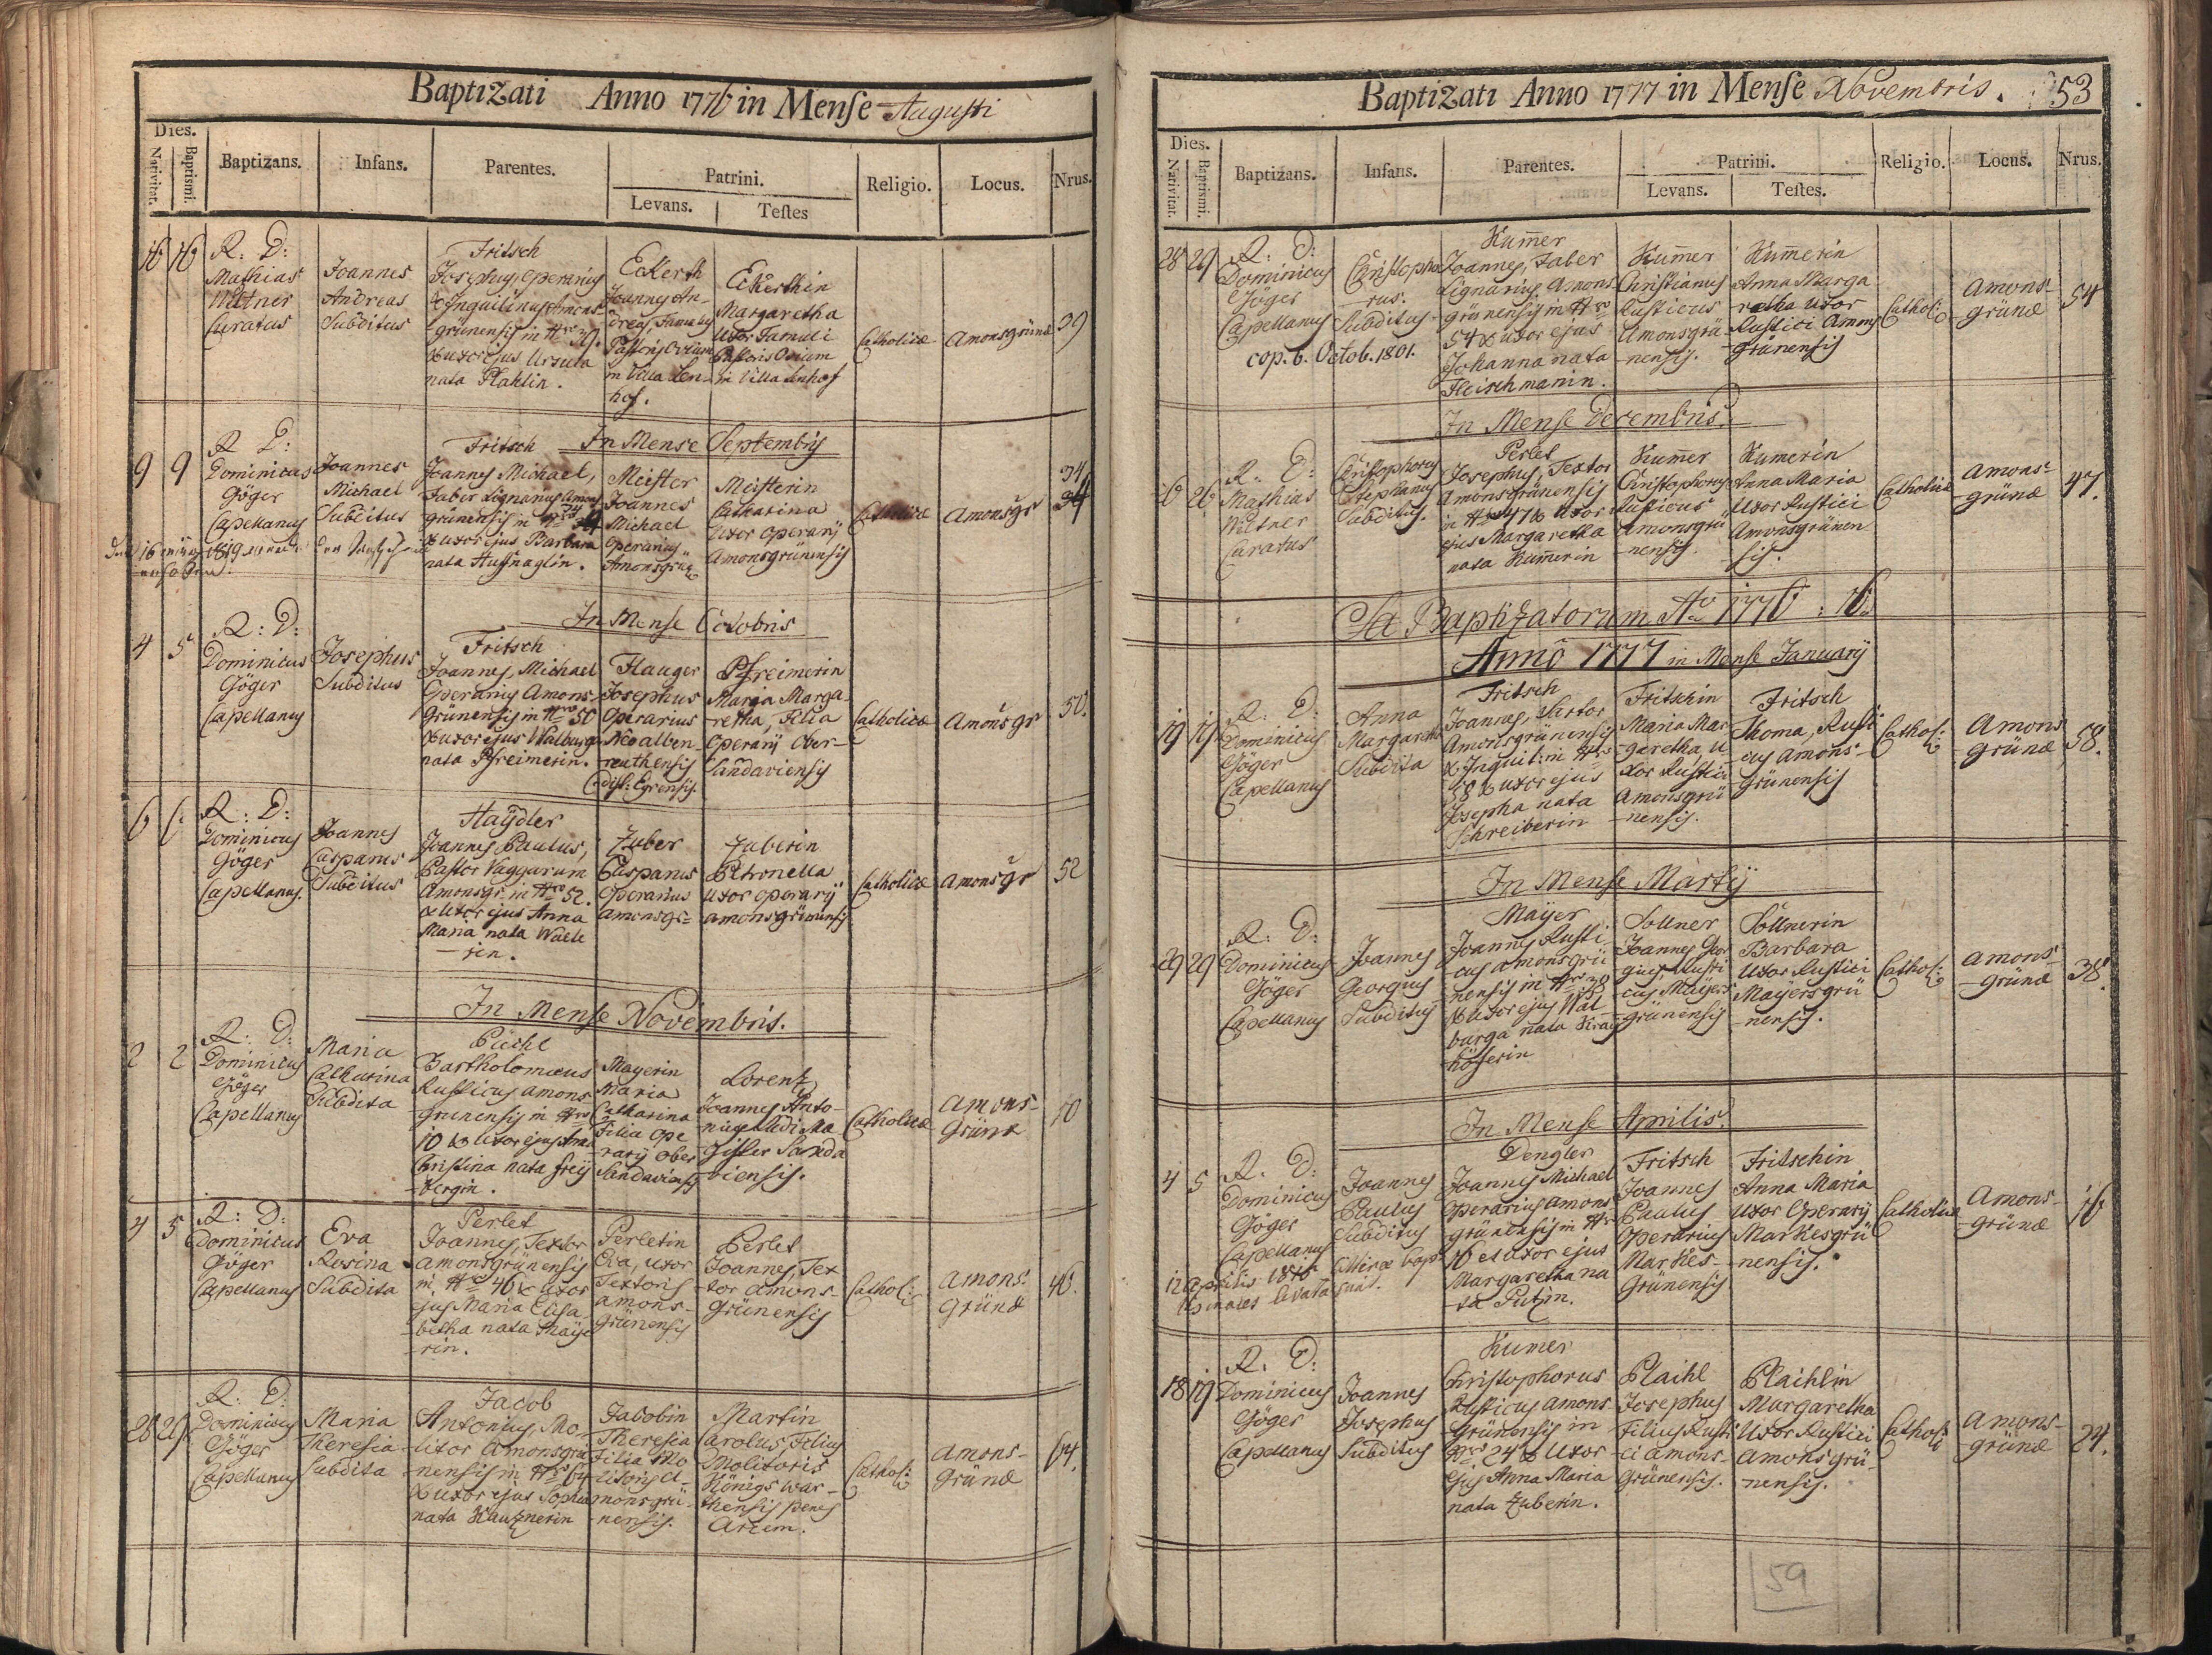 Baptizati Anno 1776 in Menſe Augusti
Dies.
Nativitat.
Baptismi.
Baptizans.
Infans.
Parentes.
Patrini.
Levans.
Teſtes
Religio.
Locus.
Nrus.
16 16
R: D:
Mathias
Miltner
Curatus
Joannes
Andreas
Subditus
Fritsch
Josephus, Operarius
& Inquilinus Amons-
grünensis in Nro 39.
& uxor ejus Ursula
nata Plahlin.
Eckerth
Joannes An-
dreas, Famulus
Pastoris Ovium
in Villa Len-
hof.
Eckerthin
Margaretha
Uxor Famuli
Pastoris Ovium
in Villa Lenhof
Catholicæ
Amonsgrünæ
39
In Mense Septembris
9 9
R: D:
Dominicus
Göger
Capellanus
Joannes
Michael
Subditus
Fritsch
Joannes Michael,
Faber Lignarius Amons
grünensis in Nro 74
& uxor ejus Barbara
nata Husnaglin.
Meister
Joannes
Michael
Operarius
Amonsgr:
Meisterin
Catharina
Uxor Operarij
Amonsgrünensis
Catholicæ
Amonsgr
74
In Menſe Octobris
4 5
R: D:
Dominicus
Göger
Capellanus
Josephus
Subditus
Fritsch
Joannes, Michael
Operarius Amons-
grünensis in Nro 50
& uxor ejus Walburga
nata Pfreimerin.
Hauger
Josephus
Operarius
Neoalben-
reuthensis
Dist: Egrensis.
Pfreimerin
Maria Marga-
retha, Filia
Operarij Ober-
Sandaviensis
Catholicæ
Amonsgr
50.
6 6
R: D:
Dominicus
Göger
Capellanus.
Joannes
Casparus
Subditus
Haÿdler
Joannes Paulus,
Pastor Vaccarum
Amonsgr: in Nro 52.
& Uxor ejus Anna
Maria nata Wael-
rin.
Zuber
Casparus
Operarius
Amonsgr=
Zuberin
Petronella
Uxor operarij
amonsgrünensis
Catholicæ
Amonsgr
52
In Menſe Novembris.
2 2
R: D:
Dominicus
Göger
Capellanus
Maria
Catharina
Subdita
Püchl
Bartholomæus
Rusticus amons
grünensis in Nro
10 & Uxor ejus Anna
Christina nata Freÿ
bergin.
Mayerin
Maria
Catharina
Filia Ope
rarij Ober
Sandaviensis
Lorentz
Joannes Anto-
nius Ludi Ma
gister Sanda
viensis.
Catholicæ
Amons-
grünæ
10
4 5
R: D:
Dominicus
Göger
Capellanus
Eva
Rosina
Subdita
Perlet
Joannes, Textor
amonsgrünensis
in Nro 46 & Uxor
ejus Maria Elisa-
betha nata Maÿe
rin.
Perletin
Eva, uxor
Textoris
amons-
grünensis
Perlet
Joannes, Tex
tor amons-
grünensis
Cathol:
Amons:
grünæ
46.
28 29
R: D:
Dominicus
Göger
Capellanus
Maria
Theresia
Subdita
Jacob
Antonius, Mo-
litor Amonsgrü
nensis in Nro 64
& uxor ejus Sophia
nata Kautznerin
Jacobin
Theresia
Filia Mo
litoris A-
monsgrü-
nensis.
Martin
Carolus, Filius
Molitoris
Königs war-
thensis penes
Arcem.
Cathol:
Amons-
grünæ
64.
Baptizati Anno 1777 in Menſe Novembris. 53
Dies.
Nativitat.
Baptismi.
Baptizans.
Infans.
Parentes.
Patrini.
Levans.
Teſtes.
Religio.
Locus.
Nrus.
28 29
R: D:
Dominicus
Göger
Capellanus
cop. 6. Octob. 1801.
Christopho
rus.
Subditus
Kum̄er
Joannes, Faber
Lignarius Amons
grünensis in Nro
54 & Uxor ejus
Johanna nata
Fleischmanin.
Kum̄er
Christianus
Rusticus
Amonsgrü
nensis.
Kum̄erin
Anna Marga
retha Uxor
Rustici Amons
grünensis
Cathol:
Amons-
grünæ
54
In Menſe Decembris.
26 26
R: D:
Mathias
Miltner
Curatus
Christophorus
Stephanus
Subditus.
Perlet
Josephus, Textor
Amonsgrünensis
in Nro 47 & Uxor
ejus Margaretha
nata Kum̄erin
Kum̄er
Christophorus
Rusticus
Amonsgrü
nensis.
Kumerin
Anna Maria
Uxor Rustici
Amonsgrünen
sis.
Catholicæ
Amons-
grünæ
47.
Sa Baptizatorum Ao 1776: 16.
Anno 1777 in Menſe Januarij
19 19
R: D:
Dominicus
Göger
Capellanus
Anna
Margaretha
Subdita
Fritsch
Joannes, Sartor
Amonsgrünensis
& Inquil: in Nro
58 & uxor ejus
Josepha nata
Schreiberin
Fritschin
Maria Mar
garetha U
xor Rustici
Amonsgrü
nensis.
Fritsch
Thoma, Rusti
cus Amons-
grünensis
Cathol:
Amons
grünæ
58.
In Menſe Martij
29 29
R: D:
Dominicus
Göger
Capellanus
Joannes
Georgius
Subditus
Maÿer
Joannes Rusti-
cus amonsgrü
nensis in Nro 38
& Uxor ejus Wal-
burga nata Kraÿ
höferin
Sollner
Joannes Geor
gius, Rusti
cus Maÿers
grünensis
Söllnerin
Barbara
Uxor Rustici
Maÿersgrü
nensis.
Cathol:
Amons-
grünæ
38.
In Menſe Aprilis.
4 5
R: D:
Dominicus
Göger
Capellanus
Joannes
Paulus
Subditus
12 Aprilis 1846 Litteræ bap-
tismales levatæ sunt.
Dengler
Joannes Michael
Operarius amons
grünensis in Nro
16 et uxor ejus
Margaretha na
ta Putzin.
Fritsch
Joannes
Paulus
Operarius
Markes-
grünensis
Fritschin
Anna Maria
Uxor Operarij
Markesgrü
nensis.
Catholicæ
Amons-
grünæ
16
18 19
R: D:
Dominicus
Göger
Capellanus
Joannes
Josephus
Subditus
Kumer
Christophorus
Rusticus amons
grünensis in
Nro 24 & Uxor
ejus Anna Maria
nata Zuberin.
Plaihl
Josephus
Filius Rusti
ci amons-
grünensis.
Plaihlin
Margaretha
Uxor Rustici
amonsgrü-
nensis.
Cathol:
Amons-
grünæ
24.
59